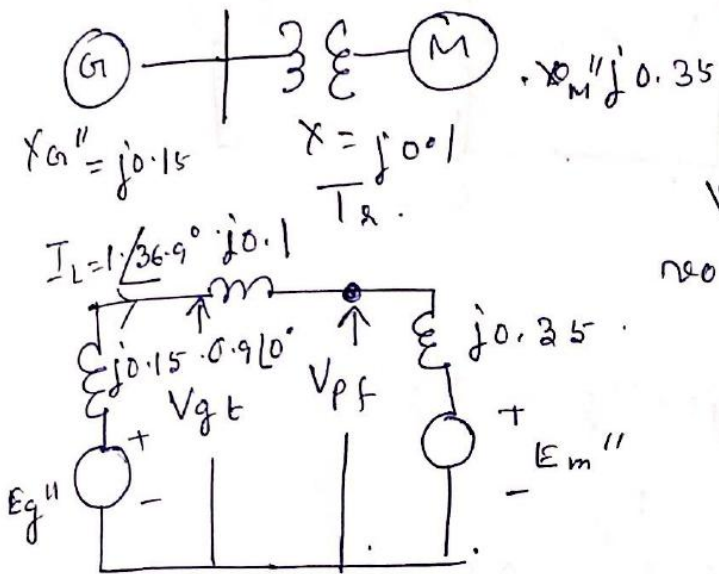 G M
XG" = j0.15
X = j0.1
Tr.
XM" j0.35
IL = 1∠36.9° j0.1
no
j0.15 0.9∠0°
Vgt
Vpf
j0.35
Eg" + -
+ Em" -